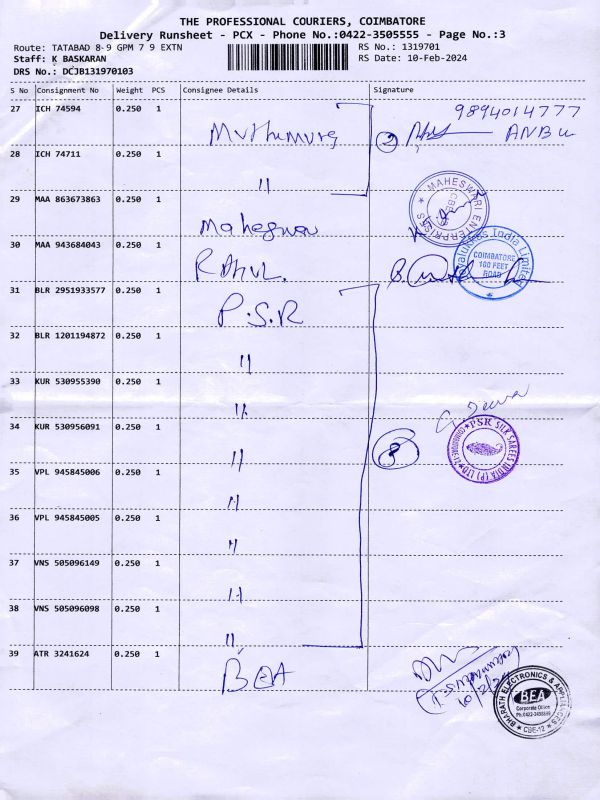 THE PROFESSIONAL COURIERS, COIMBATORE
Delivery Runsheet - PCX - Phone No.:0422-3505555 - Page No.:3
Route: TATABAD 8-9 GPM 7 9 EXTN RS No.: 1319701
Staff: K BASKARAN RS Date: 10-Feb-2024
DRS No.: DCJB131970103
S No Consignment No Weight PCS Consignee Details Signature
27 ICH 74594 0.250 1 9894014777
2 ANBU
28 ICH 74711 0.250 1
"
29 MAA 863673863 0.250 1 MAHESWARI ENTERPRISES CBE
30 MAA 943684043 0.250 1 India Limited
RAHUL. COIMBATORE
100 FEET
ROAD
31 BLR 2951933577 0.250 1
P.S.R
32 BLR 1201194872 0.250 1
"
33 KUR 530955390 0.250 1
"
34 KUR 530956091 0.250 1 PSR SILK SAREES INDIA (P) LTD
" 8
35 VPL 945845006 0.250 1
"
36 VPL 945845005 0.250 1
"
37 VNS 505096149 0.250 1
"
38 VNS 505096098 0.250 1
"
39 ATR 3241624 0.250 1
BEA 10/2/24
BHARATH ELECTRONICS & APPLIANCES
BEA
Corporate Office
CBE-12